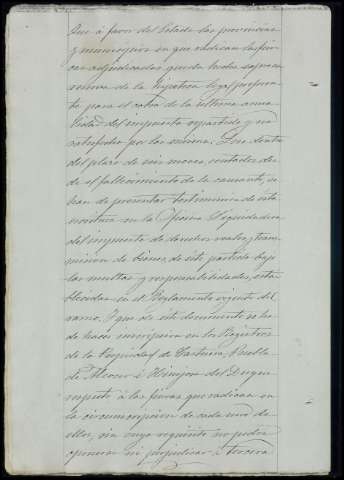 Que á favor del Estado las provincias
y municipios en que radican las fin-
cas adjudicadas queda hecha expresa
reserva de la hipoteca legal prefere-
nte para el cobro de la última anua-
lidad del impuesto repartido y no
satisfecho por las mismas. Que dentro
del plazo de seis meses, contados des-
de el fallecimiento de la causante, se
han de presentar testimonios de esta
escritura en la Oficina Liquidadora
del impuesto de derechos reales y trans-
misión de bienes de este partido bajo
las multas y responsabilidades, esta-
blecidas en el Reglamento vigente del
ramo. Y que de este documento se ha
de hacer inscripción en los Registros
de la Propiedad de Castuera, Puebla
de Alcocer é Hinojosa del Duque
respecto á las fincas que radican en
la circunscripción de cada uno de
ellos, sin cuyo requisito no podrá
oponerse ni perjudicar á tercero